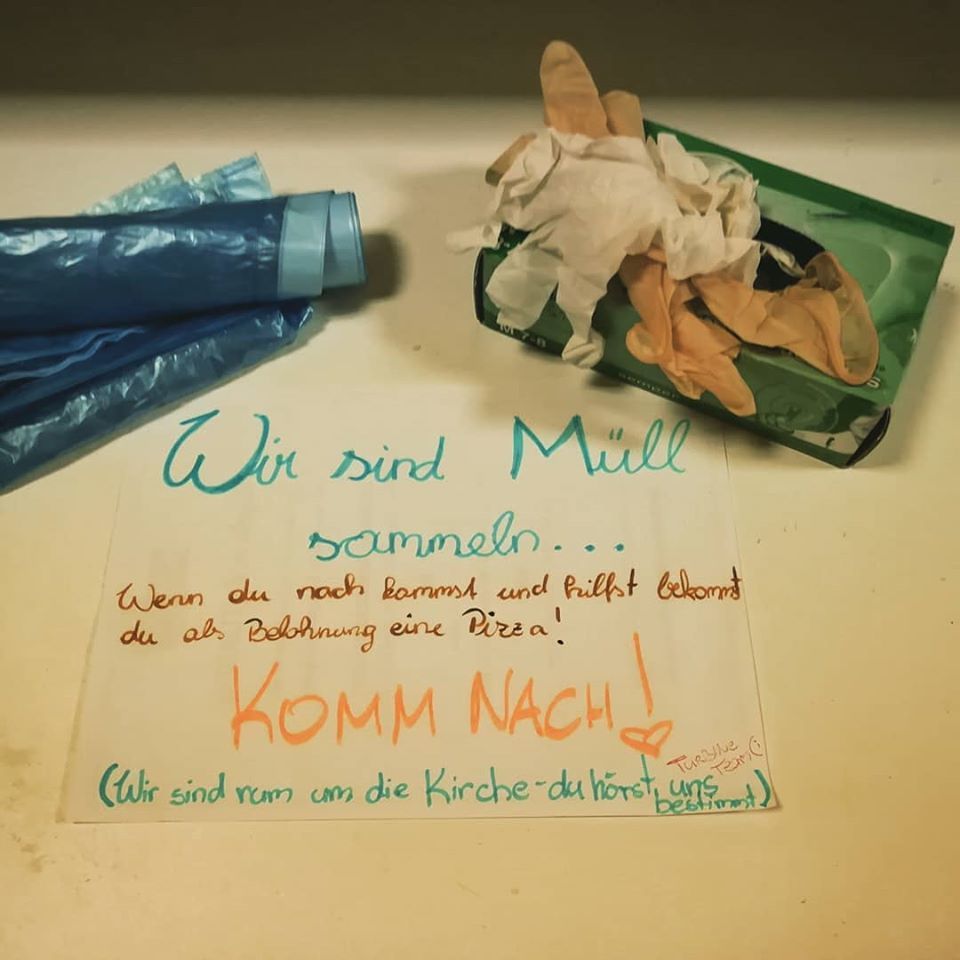 M 7-8
semper
Wir sind Müll
sammeln...
Wenn du nach kommst und hilfst bekommst
du als Belohnung eine Pizza!
KOMM NACH!
TURBINE
TEAM (:
(Wir sind rum um die Kirche-du hörst uns
bestimmt)